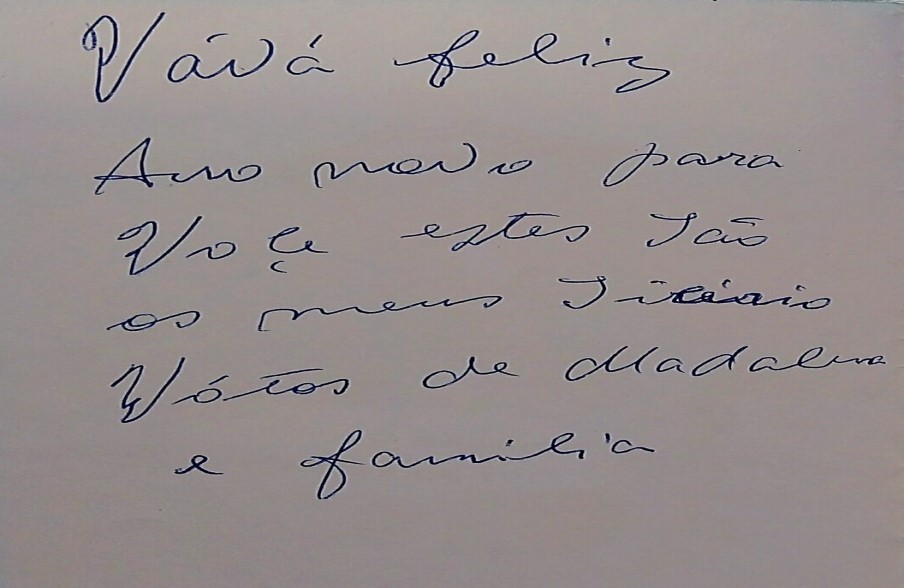 Vává feliz
Ano novo para
Voçe estes São
os meus
Vótos de Madalena
e familia